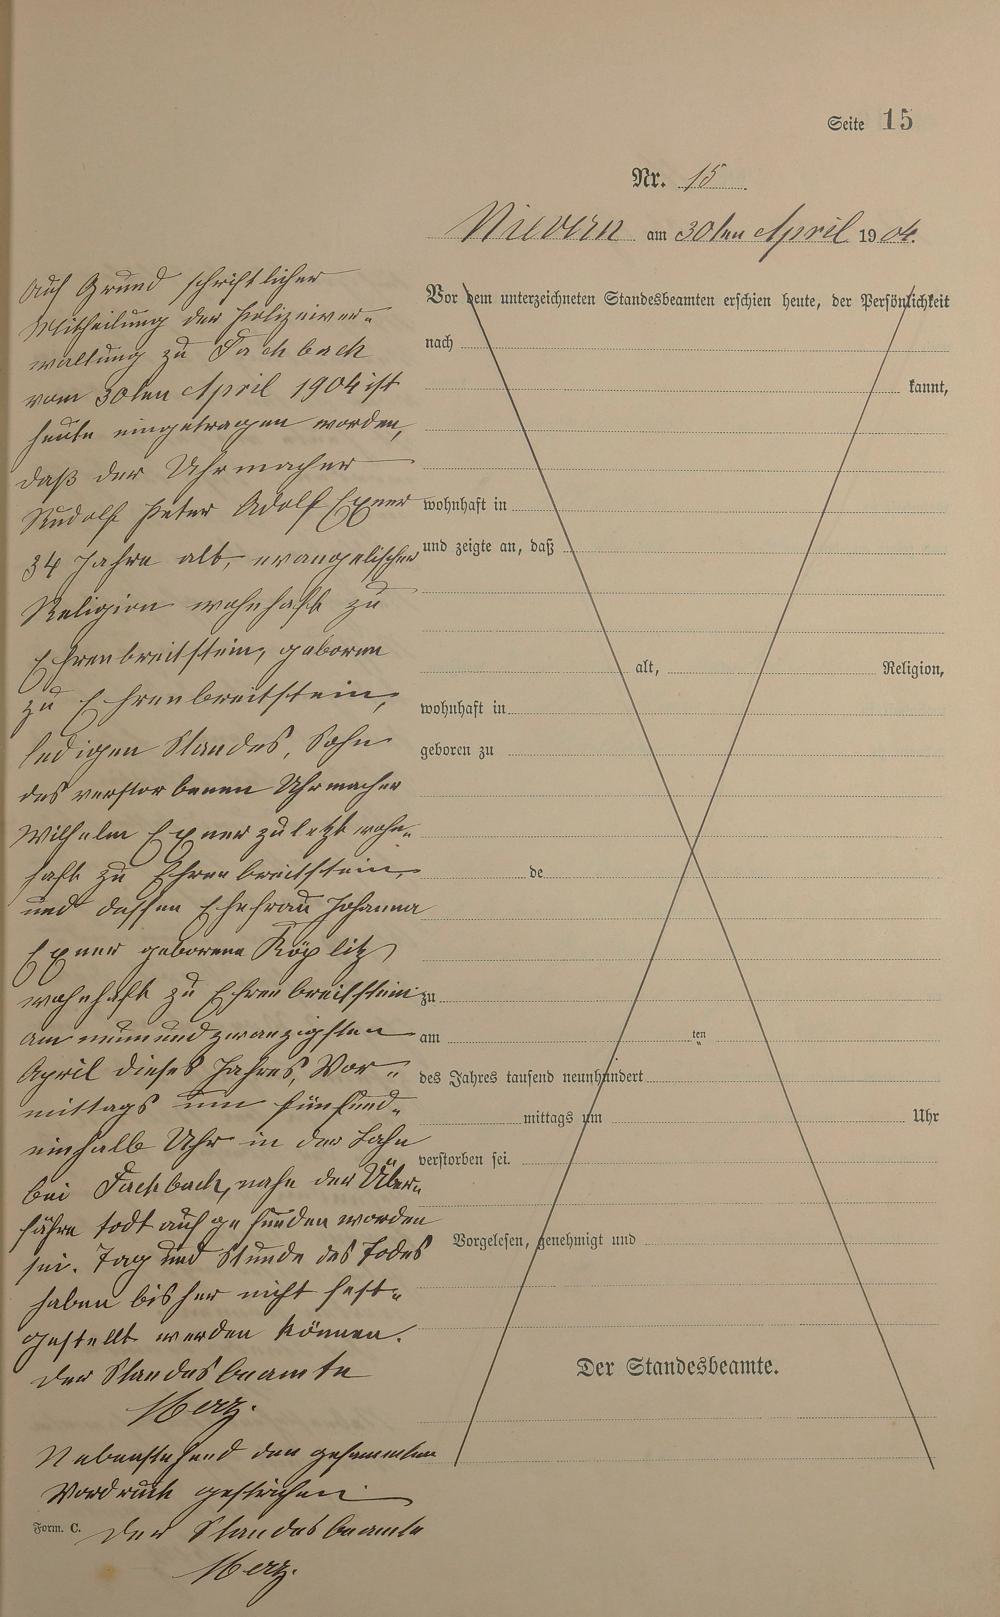 Seite 15
Nr. 15
Nievern am 30ten April 1904.
Auf Grund schriftlicher
Mittheilung der Polizeiver-
waltung zu Fachbach
vom 30ten April 1904 ist
heute eingetragen worden,
daß der Uhrmacher
Rudolf Peter Adolf Exner
34 Jahre alt, evangelischer
Religion wohnhaft zu
Ehrenbreitstein, geboren
zu Ehrenbreitstein,
ledigen Standes, Sohn
des verstorbenen Uhrmacher
Wilhelm Exner zuletzt wohn-
haft zu Ehrenbreitstein,
und dessen Ehefrau Johanna
Exner geborene
wohnhaft zu Ehrenbreitstein
am neunundzwanzigsten
April dieses Jahres, Vor-
mittags um fünfund-
einhalb Uhr in der Lahn
bei Fachbach, nahe der Über-
fähre todt aufgefunden worden
sei. Tag und Stunde des Todes
haben bisher nicht fest-
gestellt werden können.
Der Standesbeamte
Merz.
Nebenstehend den gesammten
Vordruck gestrichen
Der Standesbeamte
Merz.
Form. C.
Vor dem unterzeichneten Standesbeamten erschien heute, der Persönlichkeit
nach
kannt,
wohnhaft in
und zeigte an, daß
alt, Religion,
wohnhaft in
geboren zu
de
zu
am ten
des Jahres tausend neunhundert
mittags um Uhr
verstorben sei.
Vorgelesen, genehmigt und
Der Standesbeamte.